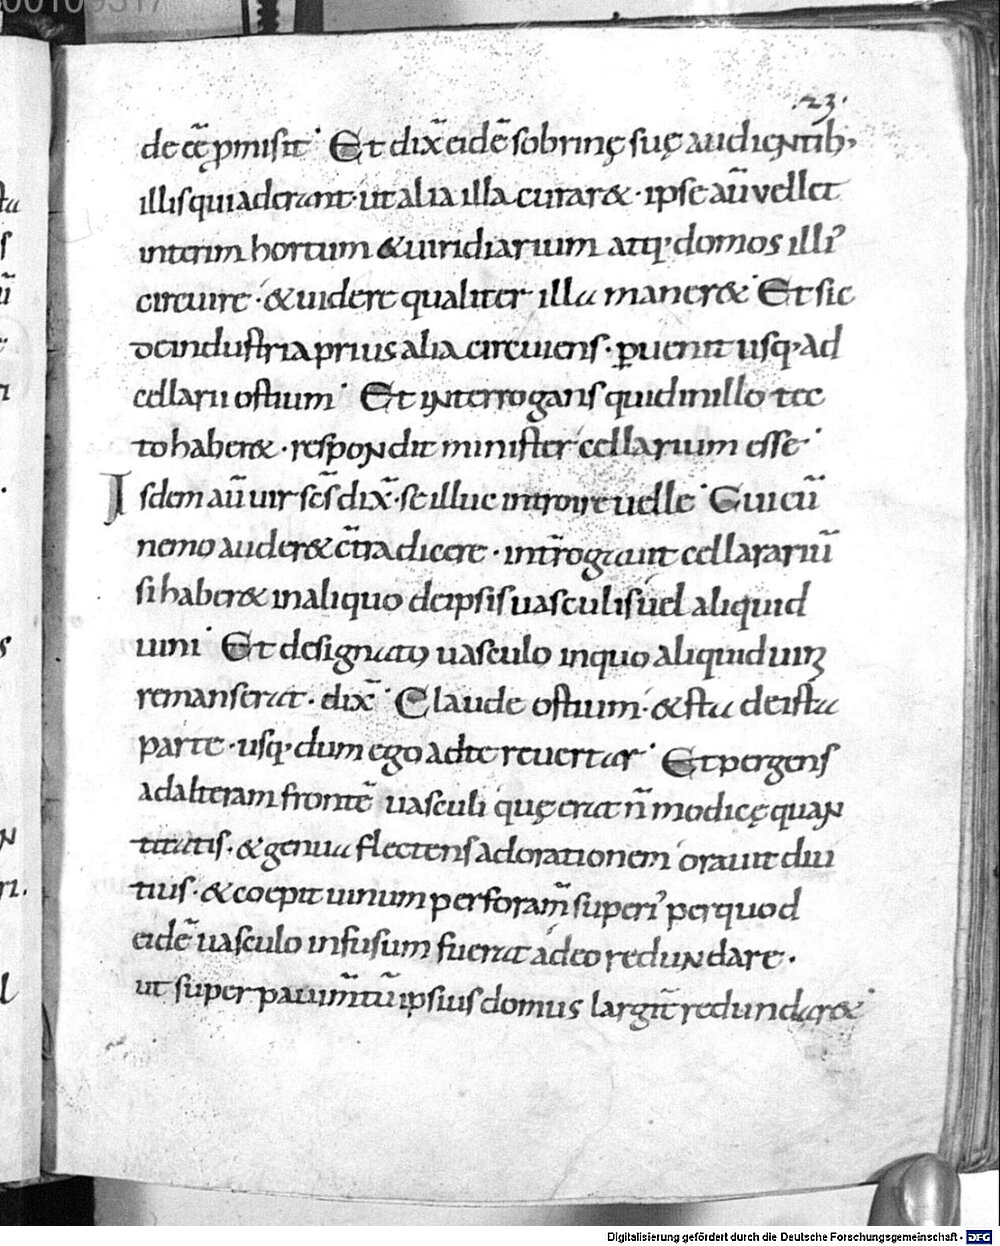 00109317
.23.
de cę̄ pmisit. Et dix̄ eidē sobrinę suę audientib;
illis qui aderant. ut alia illa curar&. ipse aū vellet
interim hortum & uiridiarium atq; domos illi'
circuire. & uidere qualiter illa maner&. Et sic
de industria prius alia circuiens. ꝑuenit usq; ad
cellarii ostium. Et interrogans quid in illo tec
to haber&. respondit minister cellarium esse.
Isdem aū uir sc̄s dix̄. se illuc introire uelle. Cui cū
nemo auder& c̄tradicere. intr̄ogauit cellarariū
si haber& in aliquo de ipsis uasculis uel aliquid
uini. Et designato uasculo in quo aliquid uini
remanserat. dix̄. Claude ostium. & sta de ista
parte. usq; dum ego ad te reuertar. Et pergens
ad alteram frontē uasculi quę erat n̄ modicę quan
titatis. & genua flectens adorationem orauit diu
tius. & coepit uinum per foram̄ superi' per quod
eidē uasculo infusum fuerat adeo redundare.
ut super pauim̄tū ipsius domus largit̄ redundar&.
Digitalisierung gefördert durch die Deutsche Forschungsgemeinschaft - DFG